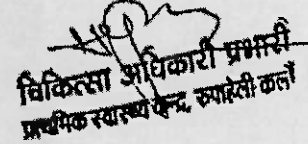 चिकित्सा अधिकारी प्रभारी
प्राथमिक स्वास्थ्य केन्द्र, रुपाहेली कलाँ